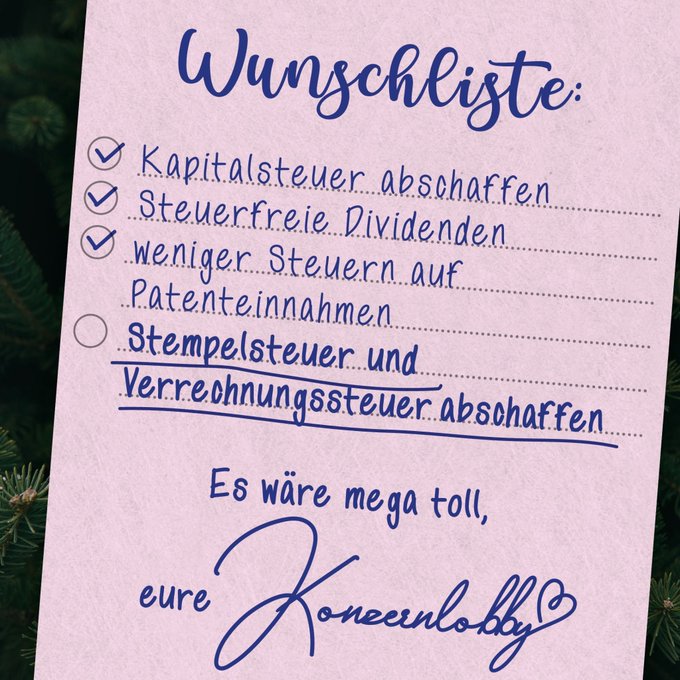 Wunschliste:
Kapitalsteuer abschaffen
Steuerfreie Dividenden
weniger Steuern auf
Patenteinnahmen
Stempelsteuer und
Verrechnungssteuer abschaffen
Es wäre mega toll,
eure Konzernlobby